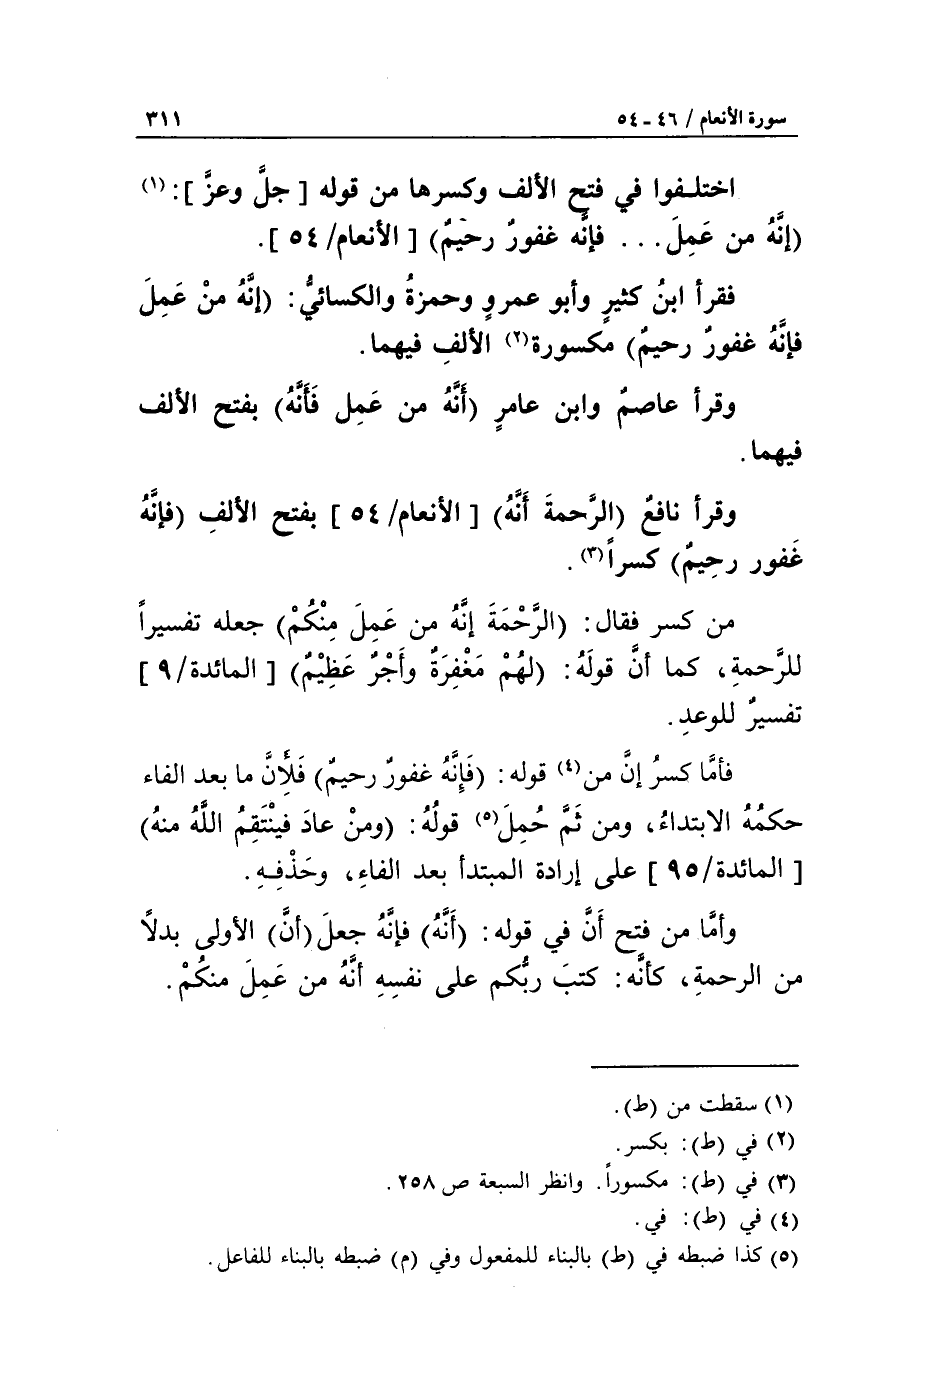 سورة الأنعام / ٤٦ - ٥٤ ٣١١
اختلـفوا في فتح الألف وكسرها من قوله [ جلَّ وعزَّ ]:(١)
(إنَّهُ من عَمِلَ... فإنَّه غفورٌ رحيمٌ) [ الأنعام/ ٥٤ ].
فقرأ ابنُ كثيرٍ وأبو عمروٍ وحمزةُ والكسائيُّ: (إنَّهُ منْ عَمِلَ
فإنَّهُ غفورٌ رحيمٌ) مكسورة(٢) الألفِ فيهما.
وقرأ عاصمٌ وابن عامرٍ (أَنَّهُ من عَمِل فَأَنَّهُ) بفتح الألف
فيهما.
وقرأ نافعٌ (الرَّحمةَ أَنَّهُ) [ الأنعام/ ٥٤ ] بفتح الألفِ (فإنَّهُ
غَفور رحِيمٌ) كسراً(٣).
من كسر فقال: (الرَّحْمَةَ إنَّهُ من عَمِلَ مِنْكُمْ) جعله تفسيراً
للرَّحمةِ، كما أنَّ قولَهُ: (لهُمْ مَغْفِرَةٌ وأَجْرٌ عَظِيْمٌ) [ المائدة/ ٩ ]
تفسيرٌ للوعدِ.
فأمَّا كسرُ إنَّ من(٤) قوله: (فَإِنَّهُ غفورٌ رحيمٌ) فَلِأَنَّ ما بعد الفاء
حكمُهُ الابتداءُ، ومن ثَمَّ حُمِلَ(٥) قولُهُ: (ومنْ عادَ فينْتَقِمُ اللَّهُ منهُ)
[ المائدة/ ٩٥ ] على إرادة المبتدأ بعد الفاءِ، وحَذْفِـهِ.
وأمَّا من فتح أَنَّ في قوله: (أَنَّهُ) فإنَّهُ جعلَ (أنَّ) الأولى بدلاً
من الرحمةِ، كأنَّه: كتبَ ربُّكم على نفسِهِ أنَّهُ من عَمِلَ منكُمْ.
(١) سقطت من (ط).
(٢) في (ط): بكسر.
(٣) في (ط): مكسوراً. وانظر السبعة ص ٢٥٨.
(٤) في (ط): في.
(٥) كذا ضبطه في (ط) بالبناء للمفعول وفي (م) ضبطه بالبناء للفاعل.